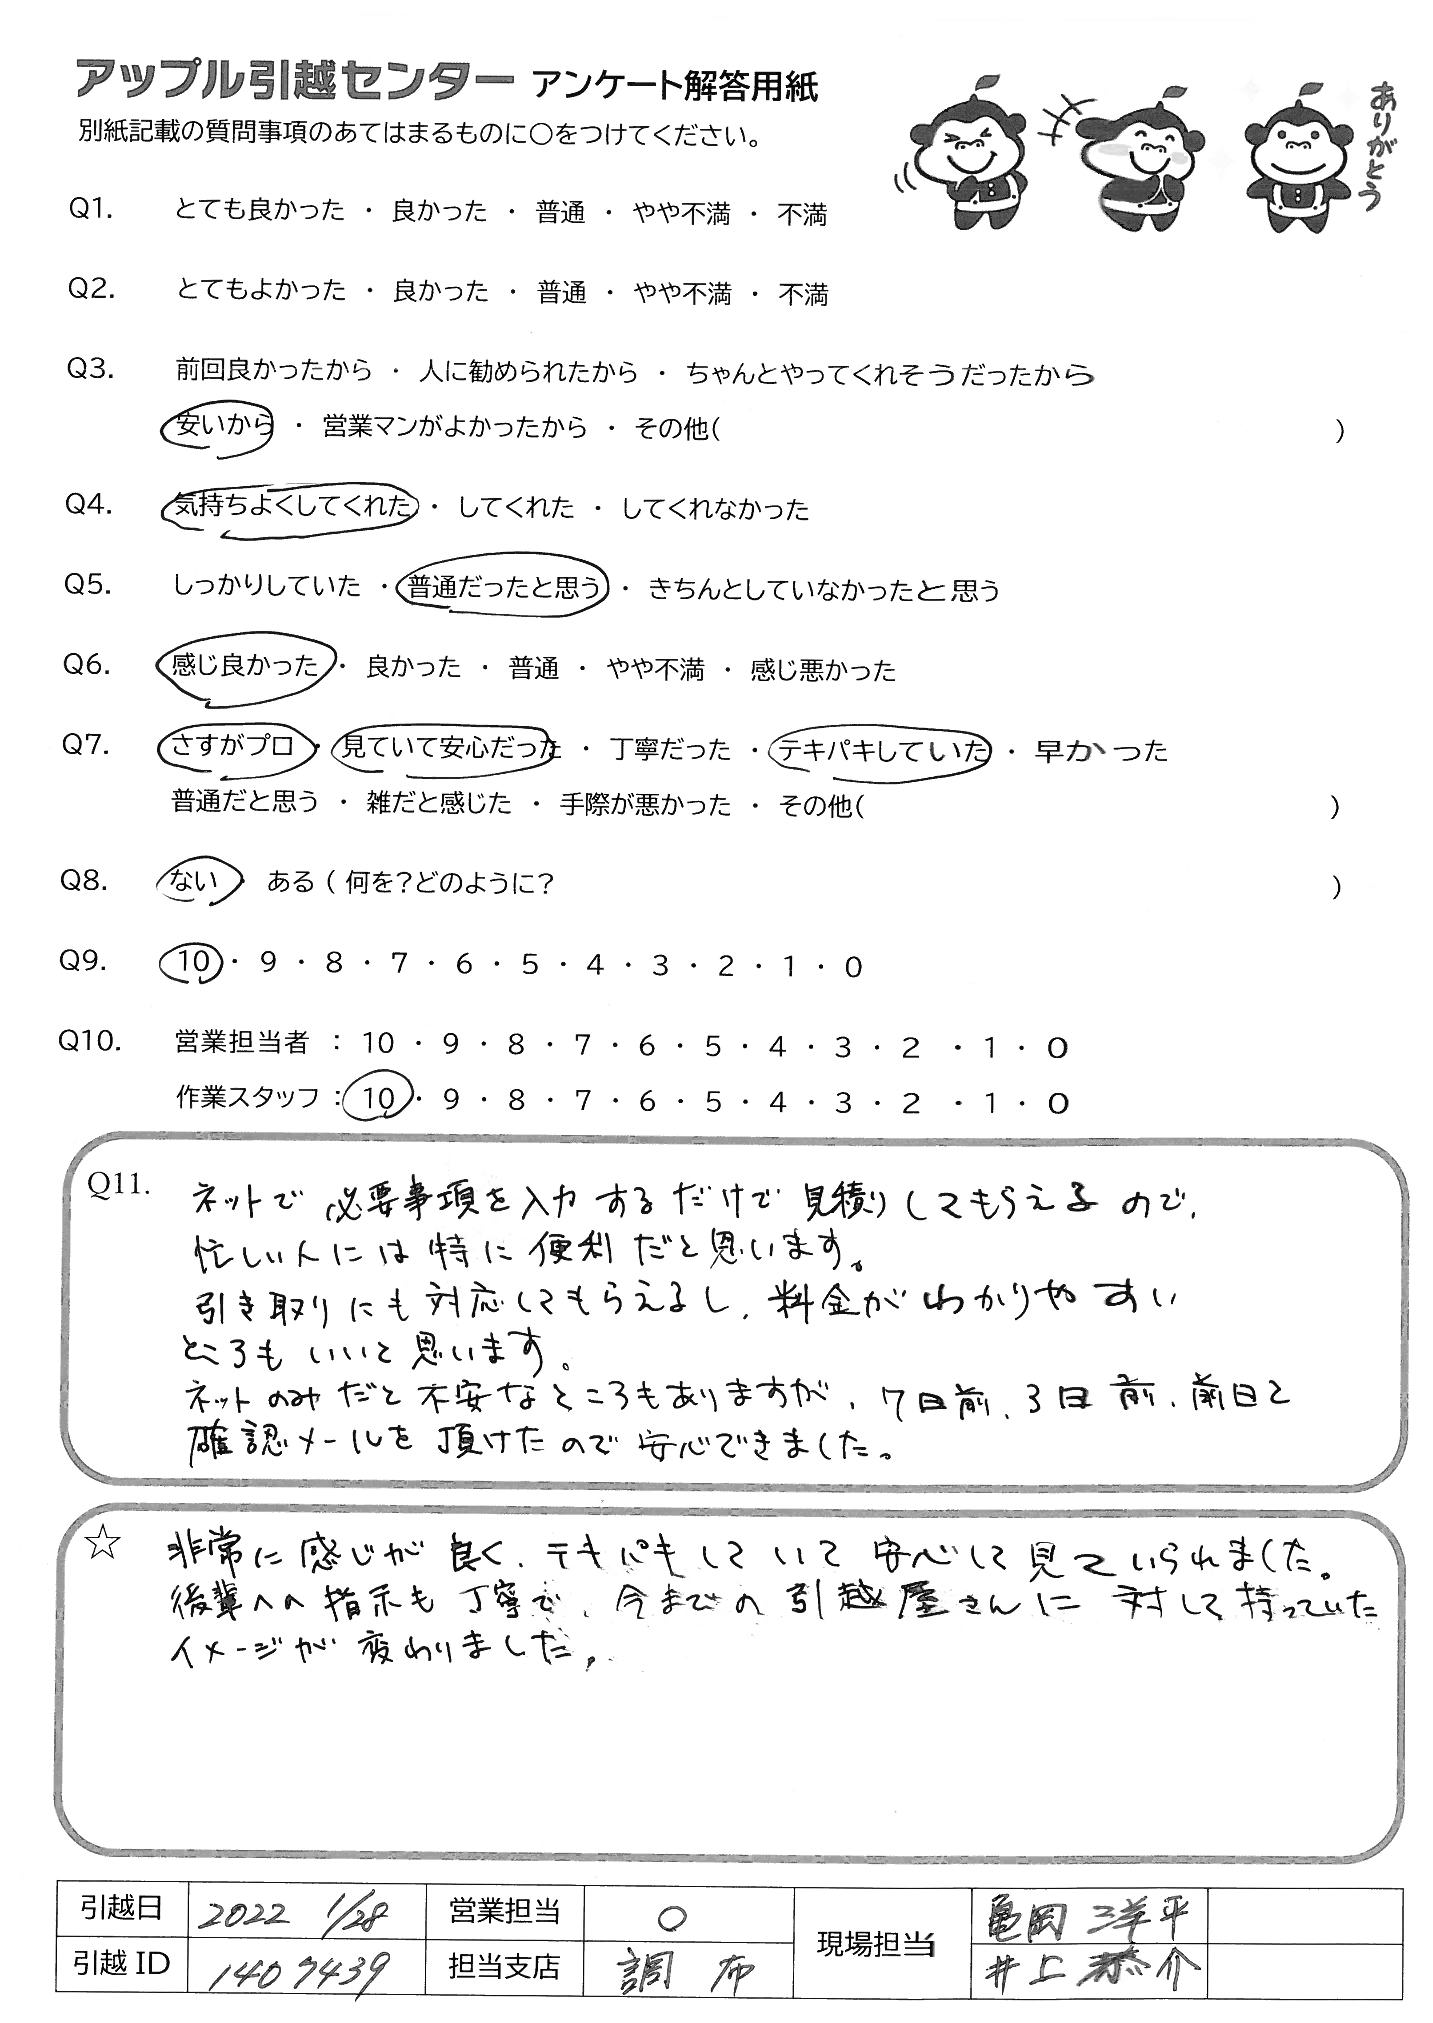 アップル引越センター アンケート解答用紙
別紙記載の質問事項のあてはまるものに○をつけてください。
ありがとう
Q1. とても良かった ・ 良かった ・ 普通 ・ やや不満 ・ 不満
Q2. とてもよかった ・ 良かった ・ 普通 ・ やや不満 ・ 不満
Q3. 前回良かったから ・ 人に勧められたから ・ ちゃんとやってくれそうだったから
安いから ・ 営業マンがよかったから ・ その他( )
Q4. 気持ちよくしてくれた ・ してくれた ・ してくれなかった
Q5. しっかりしていた ・ 普通だったと思う ・ きちんとしていなかったと思う
Q6. 感じ良かった ・ 良かった ・ 普通 ・ やや不満 ・ 感じ悪かった
Q7. さすがプロ ・ 見ていて安心だった ・ 丁寧だった ・ テキパキしていた ・ 早かった
普通だと思う ・ 雑だと感じた ・ 手際が悪かった ・ その他( )
Q8. ない ・ ある ( 何を?どのように? )
Q9. 10 ・ 9 ・ 8 ・ 7 ・ 6 ・ 5 ・ 4 ・ 3 ・ 2 ・ 1 ・ 0
Q10. 営業担当者 : 10 ・ 9 ・ 8 ・ 7 ・ 6 ・ 5 ・ 4 ・ 3 ・ 2 ・ 1 ・ 0
作業スタッフ : 10 ・ 9 ・ 8 ・ 7 ・ 6 ・ 5 ・ 4 ・ 3 ・ 2 ・ 1 ・ 0
Q11. ネットで必要事項を入力するだけで見積りしてもらえるので、
忙しい人には特に便利だと思います。
引き取りにも対応してもらえるし、料金がわかりやすい
ところもいいと思います。
ネットのみだと不安なところもありますが、7日前、3日前、前日と
確認メールを頂けたので安心できました。
☆ 非常に感じが良く、テキパキしていて安心して見ていられました。
後輩への指示も丁寧で、今までの引越屋さんに対して持っていた
イメージが変わりました。
引越日 2022 1/28 営業担当 ○ 現場担当 亀岡 洋平
引越ID 1407439 担当支店 調布 井上 恭介